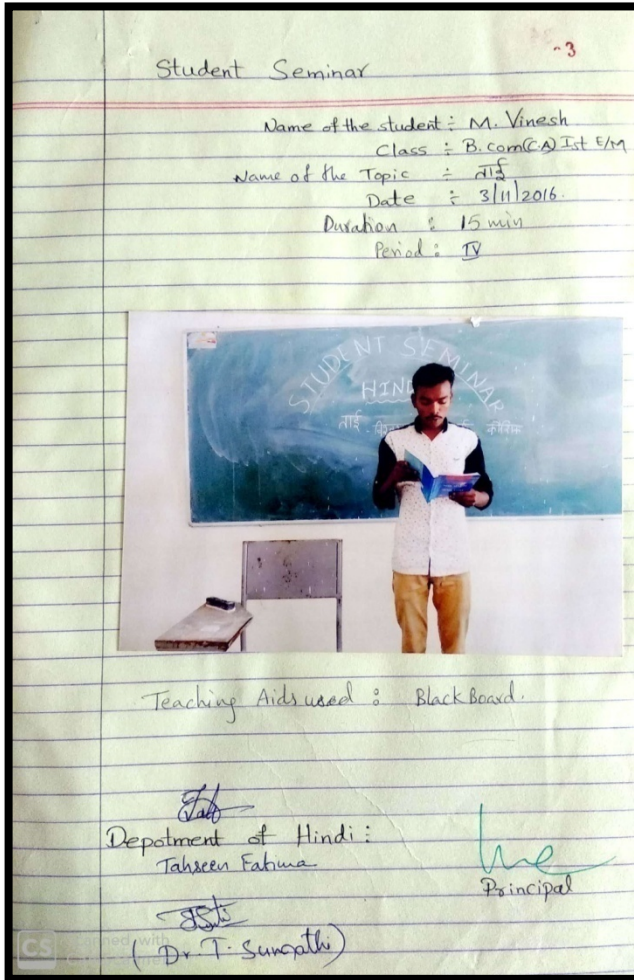 -3
Student Seminar
Name of the student : M. Vinesh
Class : B.com(CA) Ist E/M
Name of the Topic : ताई
Date : 3/11/2016.
Duration : 15 min
Period : IV
STUDENT SEMINAR
HIND
ताई - विश्व कौशिक
Teaching Aids used : Black Board.
Depotment of Hindi :
Tahseen Fatima
Principal
(Dr. T. Sumathi)
CS